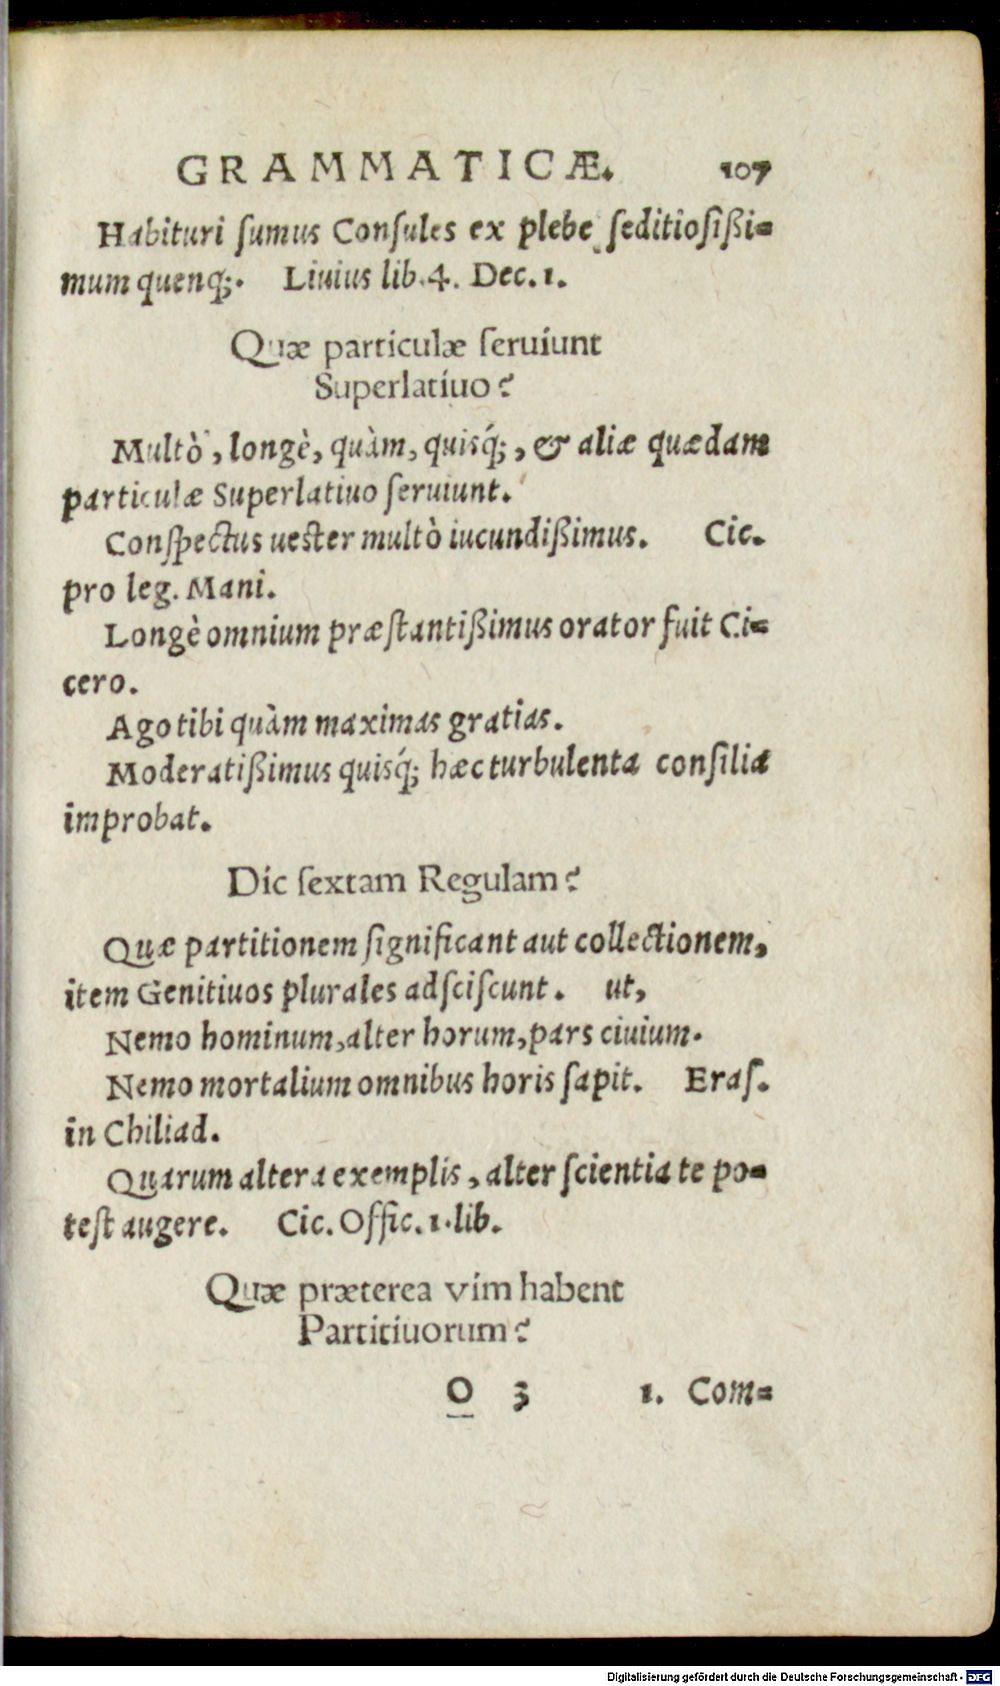 GRAMMATICÆ. 107
Habituri ſumus Conſules ex plebe ſeditioſißi=
mum quenq;. Liuius lib.4. Dec.1.
Quæ particulæ ſeruiunt
Superlatiuo?
Multò, longè, quàm, quisq́;, & aliæ quædam
particulæ Superlatiuo ſeruiunt.
Conſpectus ueſter multò iucundißimus. Cic.
pro leg. Mani.
Longè omnium præſtantißimus orator fuit Ci=
cero.
Ago tibi quàm maximas gratias.
Moderatißimus quisq́; hæc turbulenta conſilia
improbat.
Dic ſextam Regulam?
Quæ partitionem ſignificant aut collectionem,
item Genitiuos plurales adſciſcunt. ut,
Nemo hominum, alter horum, pars ciuium.
Nemo mortalium omnibus horis ſapit. Eraſ.
in Chiliad.
Quarum altera exemplis, alter ſcientia te po=
teſt augere. Cic. Offic. 1. lib.
Quæ præterea vim habent
Partitiuorum?
O 3 1. Com=
Digitalisierung gefördert durch die Deutsche Forschungsgemeinschaft - DFG